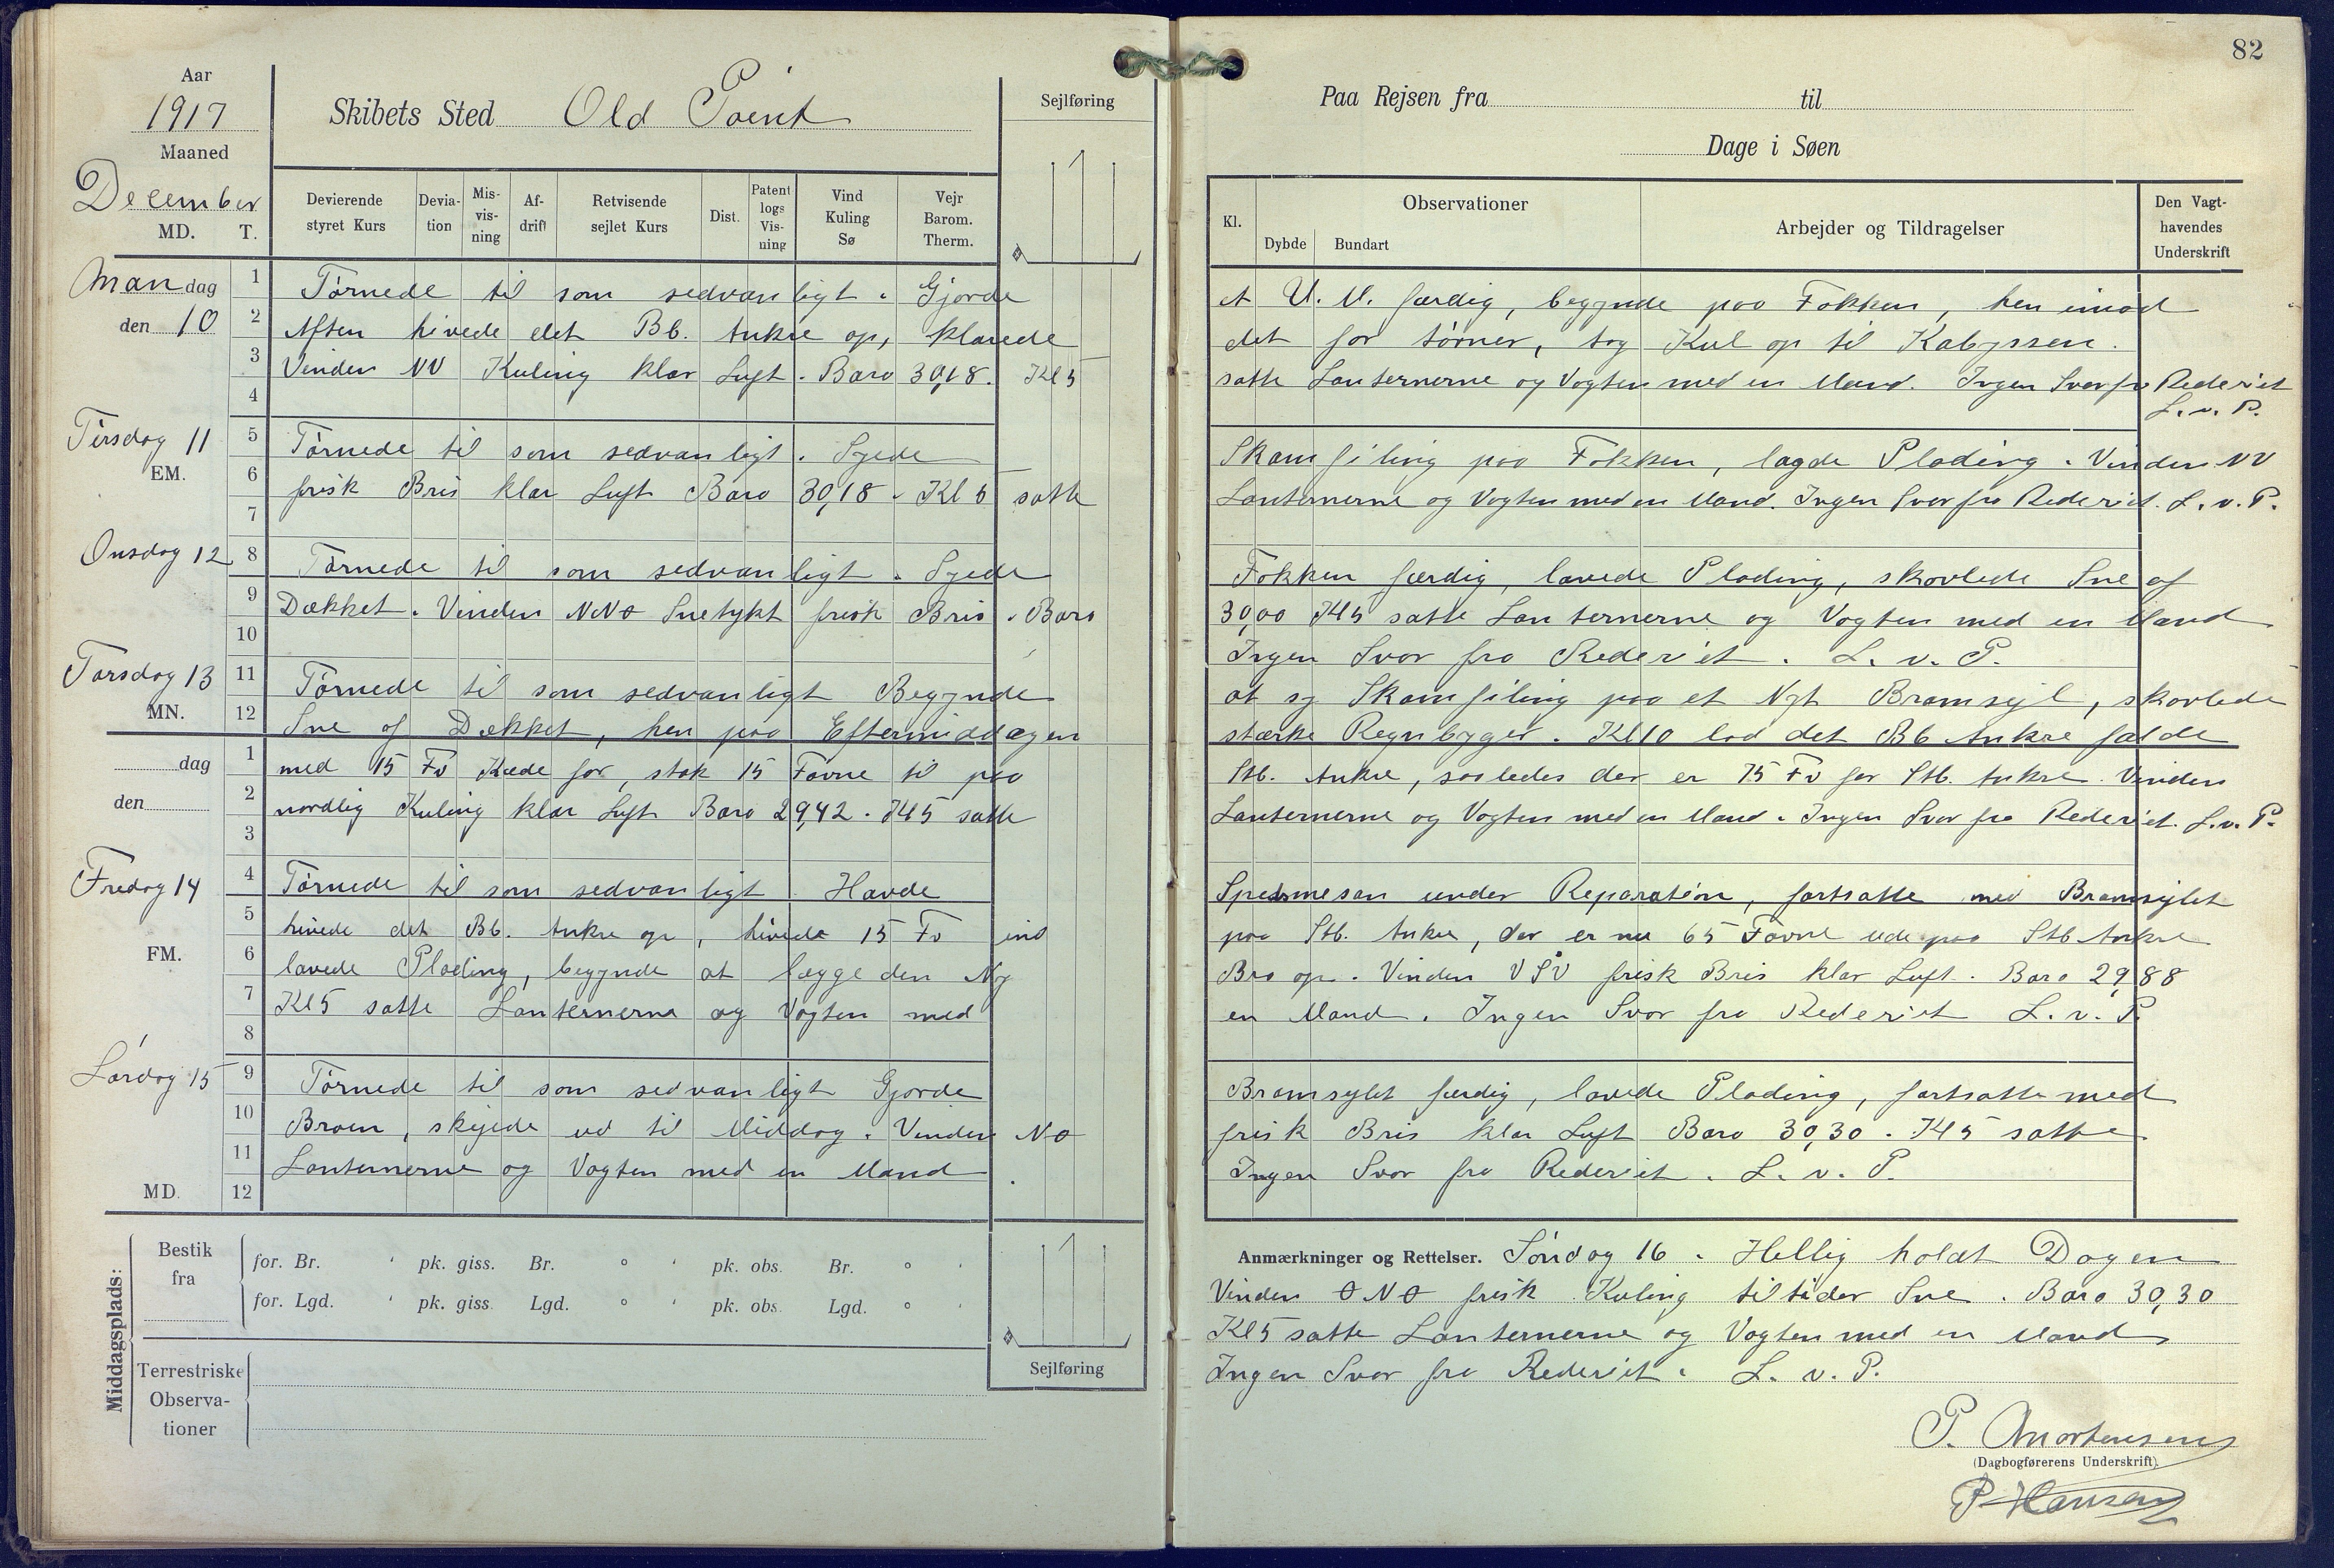 82
Aar
1917
Maaned
December
MD. T.
Skibets Sted Old Point
Sejlføring
Paa Rejsen fra til
Dage i Søen
Devierende styret Kurs
Deviation
Mis-vis-ning
Af-drift
Retvisende sejlet Kurs
Dist.
Patent logs Vis-ning
Vind Kuling Sø
Vejr Barom. Therm.
Kl.
Observationer
Dybde Bundart
Arbejder og Tildragelser
Den Vagt-havendes Underskrift
Mandag den 10
Tørnede til som sedvanligt. Gjorde et U. M. færdig, begynde paa Fokken, hen imod
Aften hivede det Bb. Ankre op, klarede det for tørner, tog Kul op til Kabyssen.
Vinden NV Kuling klar Luft. Baro 30,18. Kl 5 satte Lanternerne og Vagten med en Mand. Ingen Svar fra Rederiet
L. v. P.
Tirsdag 11
EM.
Tørnede til som sedvanligt. Syede Skamfiling paa Fokken, lagde Plading. Vinden NV
frisk Bris klar Luft Baro 30,18. Kl 5 satte Lanternerne og Vagten med en Mand. Ingen Svar fra Rederiet. L. v. P.
Onsdag 12
Tørnede til som sedvanligt. Syede Fokken færdig, lavede Plading, skovlede Sne af
Dækket. Vinden NNO Snetykt frisk Bris. Baro 30,00 Kl 5 satte Lanternerne og Vagten med en Mand
Ingen Svar fra Rederiet. L. v. P.
Torsdag 13
MN.
Tørnede til som sedvanligt Begynde at sy Skamfiling paa et Nyt Bramsejl, skovlede
Sne af Dækket, hen paa Eftermiddagen stærke Regnbyger. Kl 10 lod det Bb Ankre falde
dag
den
med 15 Fv Kæde for, stak 15 Favne til paa Stb. Ankre, saaledes der er 75 Fv for Stb. Ankre. Vinden
nordlig Kuling klar Luft Baro 29,42. Kl 5 satte Lanternerne og Vagten med en Mand. Ingen Svar fra Rederiet. L. v. P.
Fredag 14
FM.
Tørnede til som sedvanligt. Havde mesan under Reparation, fortsatte med Bramsejlet
hivede det Bb. Ankre op, hivede 15 Fv ind paa Stb. Ankre, der er nu 65 Favne ude paa Stb Ankre
lavede Plading, begynde at lægge den Ny Bro op. Vinden VSV frisk Bris klar Luft. Baro 29,88
Kl 5 satte Lanternerne og Vagten med en Mand. Ingen Svar fra Rederiet L. v. P.
Lørdag 15
MD.
Tørnede til som sedvanligt Gjorde Bramsejlet færdig, lavede Plading, fortsatte med
Broen, skejede ud til Middag. Vinden NO frisk Bris klar Luft Baro 30,30. Kl 5 satte
Lanternerne og Vagten med en Mand. Ingen Svar fra Rederiet. L. v. P.
1
2
3
4
5
6
7
8
9
10
11
12
1
2
3
4
5
6
7
8
9
10
11
12
Middagsplads:
Bestik fra
for. Br. ' pk. giss. Br. ° ' pk. obs. Br. ° '
for. Lgd. ' pk. giss. Lgd. ° ' pk. obs. Lgd. ° '
Terrestriske Observa-tioner
Sejlføring
Anmærkninger og Rettelser. Søndag 16. Hellig holdt Dagen
Vinden ONO frisk Kuling til tider Sne. Baro 30,30
Kl 5 satte Lanternerne og Vagten med en Mand
Ingen Svar fra Rederiet. L. v. P.
P. Mortensen
(Dagbogførerens Underskrift).
P Hansen